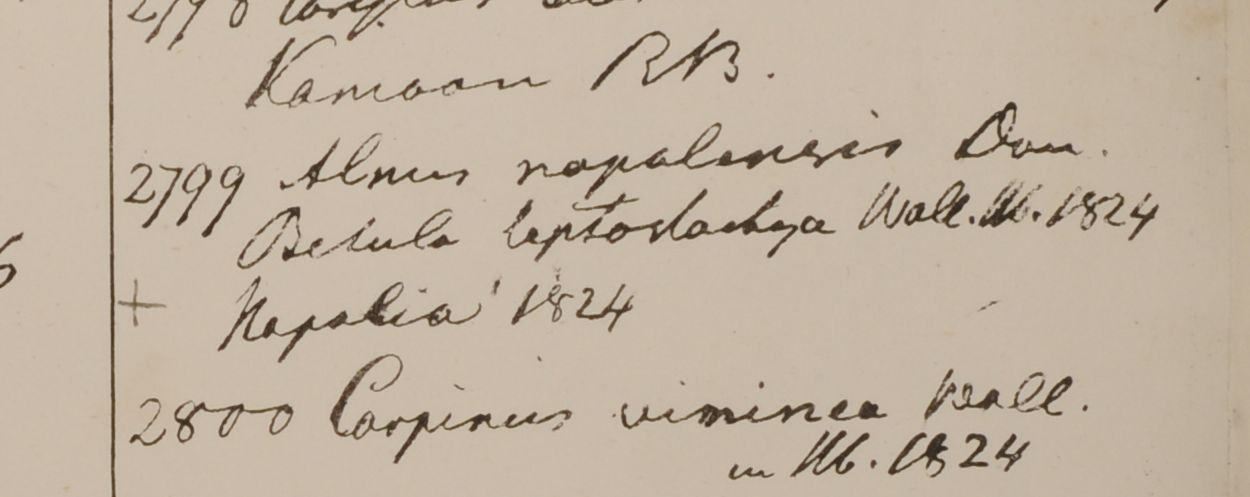 2798
Kamaon RB.
2799 Alnus napalensis Don.
Betula leptostachya Wall. Hb. 1824
+ Napalia 1824
2800 Carpinus viminea Wall.
in Hb. 1824